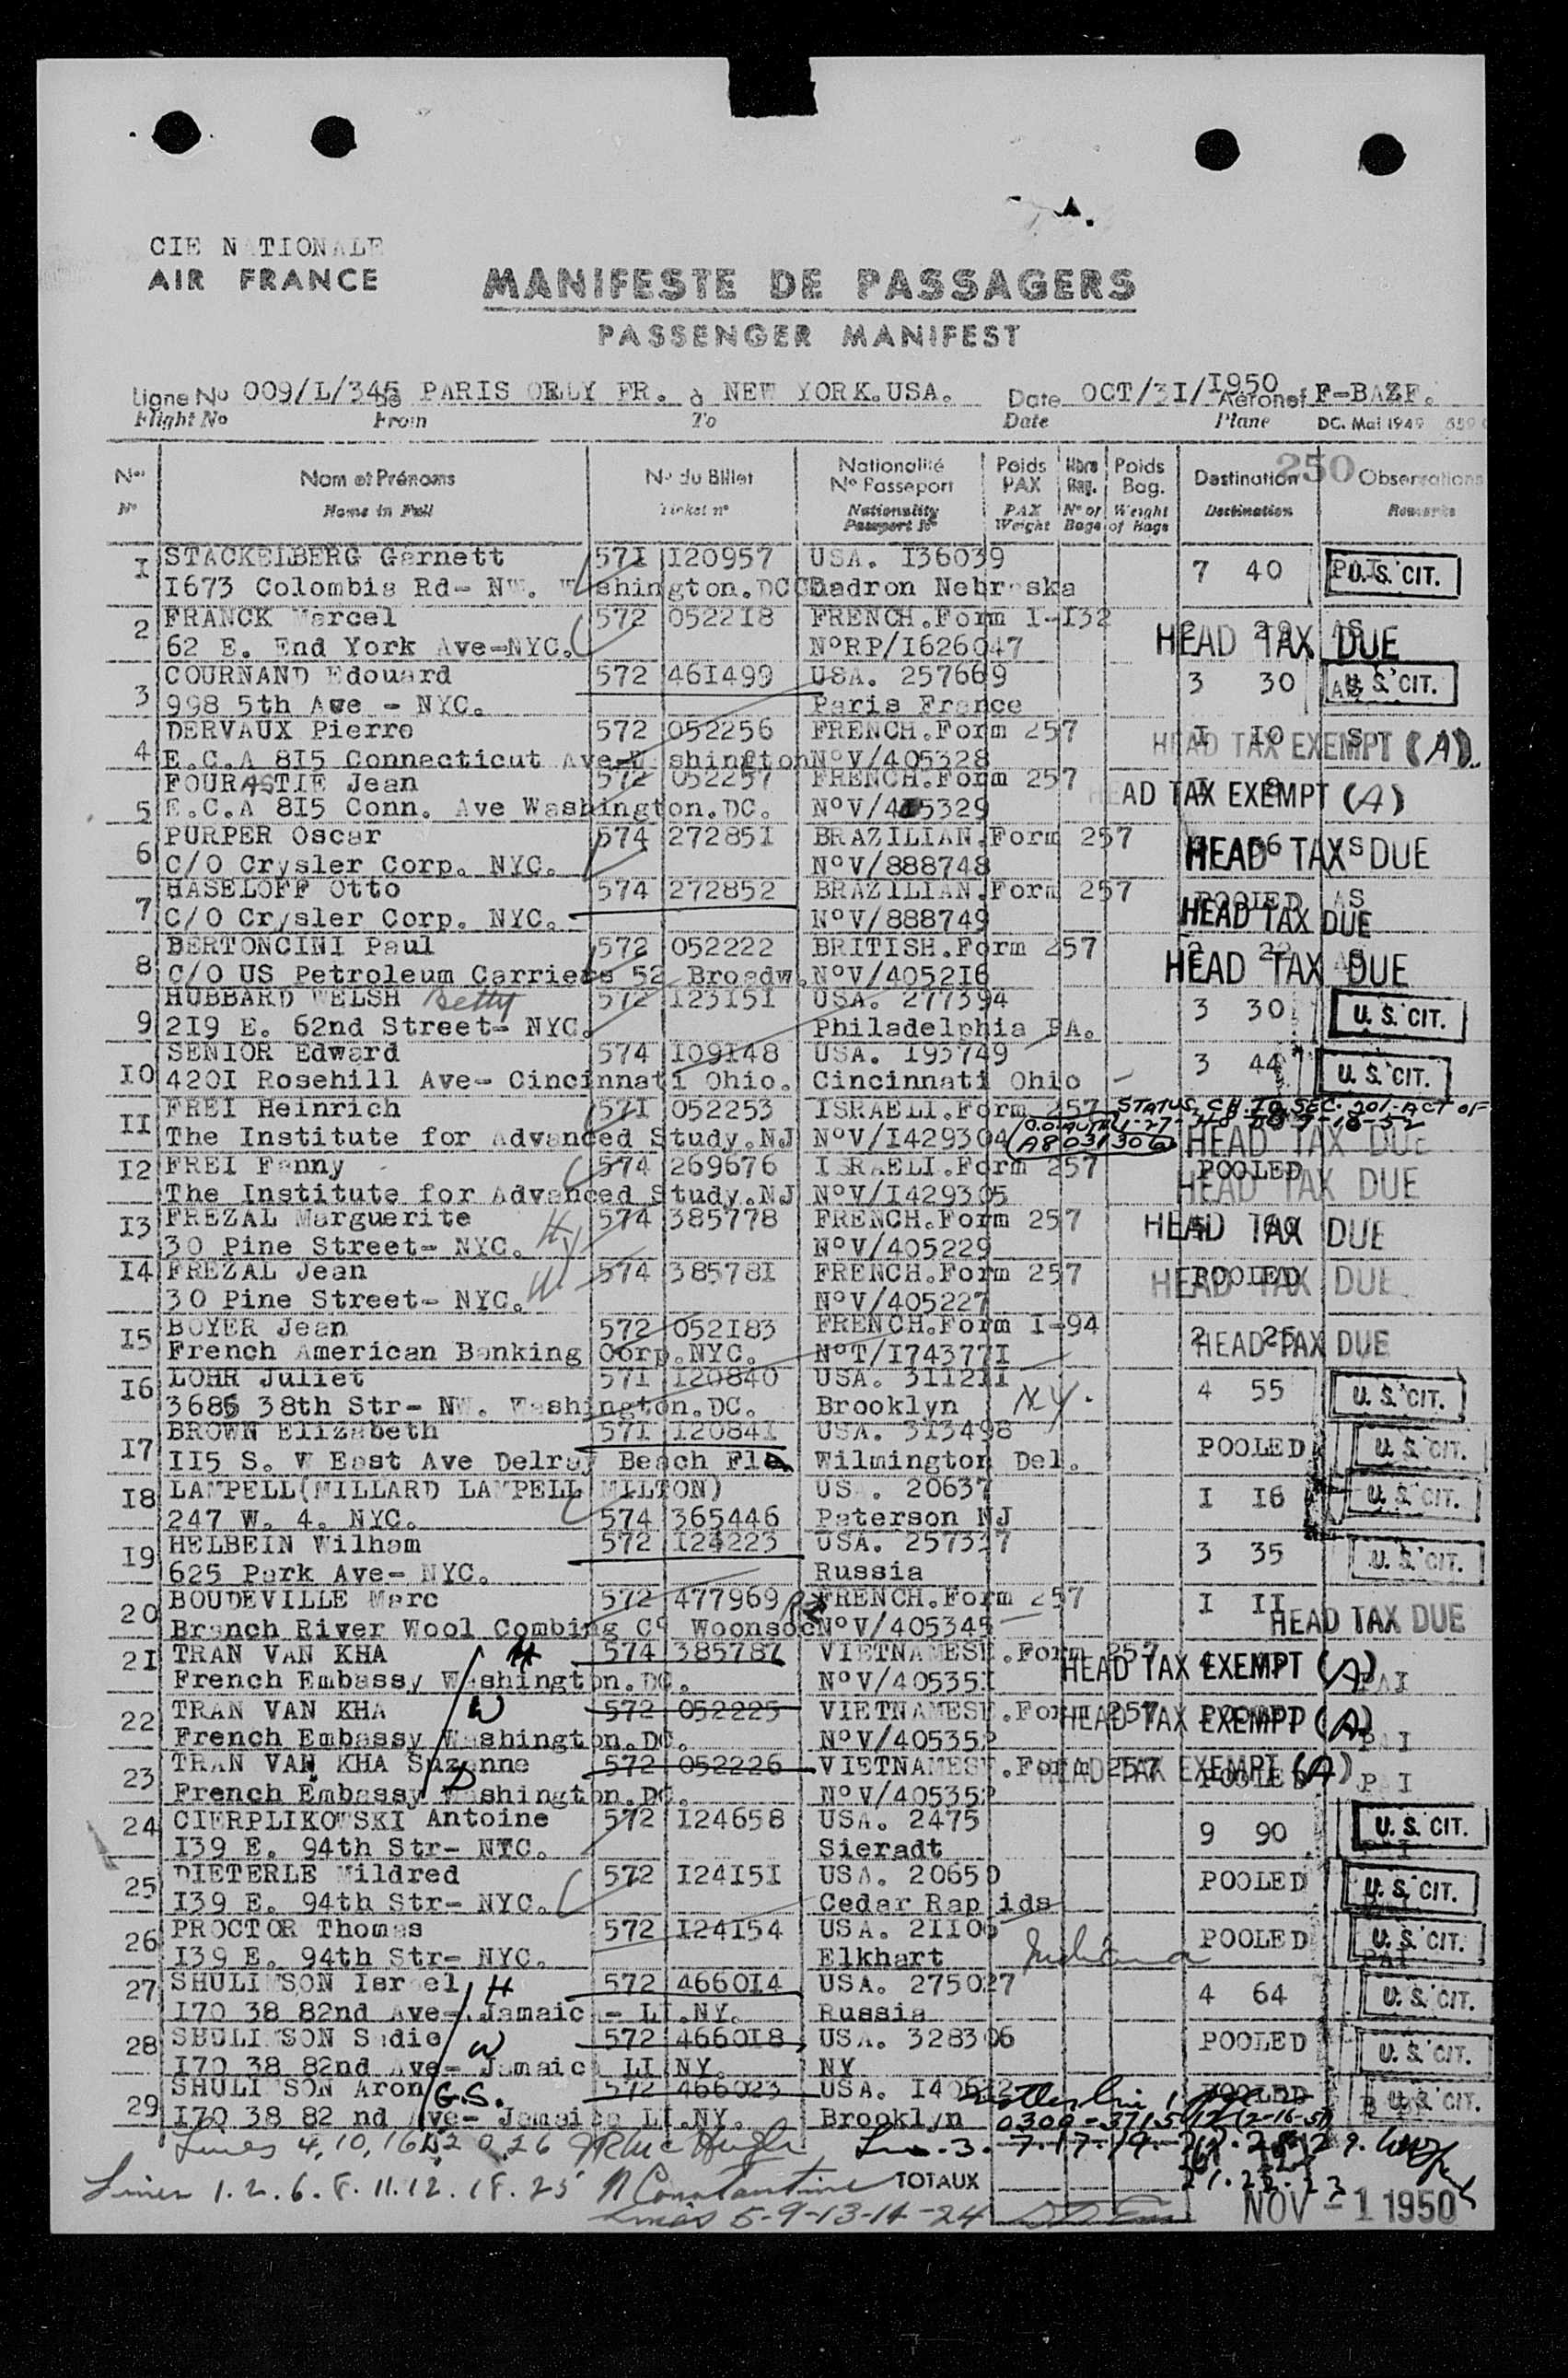 CIE NATIONALE
AIR FRANCE
MANIFESTE DE PASSAGERS
PASSENGER MANIFEST
Ligne No 009/L/345 de PARIS ORLY FR. à NEW YORK.USA. Date OCT/31/1950 Aéronef F-BAZF.
Flight No From To Date Plane DC. Mai 1949
250
Nos Nom et Prénoms No du Billet Nationalité No Passeport Poids PAX Nbre Bag. Poids Bag. Destination Observations
No Name in Full Ticket no Nationality Passport No PAX Weight No of Bags Weight of Bags Destination Remarks
1 STACKELBERG Garnett 571 120957 USA. 136039 7 40 PAI U.S. CIT.
1673 Colombia Rd- NW. Washington.DC Chadron Nebraska
2 FRANCK Marcel 572 052218 FRENCH.Form I-132 HEAD TAX DUE
62 E. End York Ave-NYC. NoRP/1626047
3 COURNAND Edouard 572 461499 USA. 257669 3 30 AS U.S. CIT.
998 5th Ave - NYC. Paris France
4 DERVAUX Pierre 572 052256 FRENCH.Form 257 1 10 HEAD TAX EXEMPT (A)
E.C.A 815 Connecticut Ave-Washington NoV/405328
5 FOURASTIE Jean 572 052257 FRENCH.Form 257 HEAD TAX EXEMPT (A)
E.C.A 815 Conn. Ave Washington.DC. NoV/405329
6 PURPER Oscar 574 272851 BRAZILIAN.Form 257 HEAD TAX DUE
C/O Crysler Corp. NYC. NoV/888748
7 HASELOFF Otto 574 272852 BRAZILIAN.Form 257 POOLED AS HEAD TAX DUE
C/O Crysler Corp. NYC. NoV/888749
8 BERTONCINI Paul 572 052222 BRITISH.Form 257 HEAD TAX DUE
C/O US Petroleum Carriers 52 Broadw. NoV/405216
9 HUBBARD WELSH Betty 572 123151 USA. 277394 3 30 U.S. CIT.
219 E. 62nd Street- NYC. Philadelphia PA.
10 SENIOR Edward 574 109148 USA. 193749 3 44 U.S. CIT.
4201 Rosehill Ave- Cincinnati Ohio. Cincinnati Ohio
11 FREI Heinrich 571 052253 ISRAELI.Form 257 STATUS CH. TO SEC. 201-ACT OF
The Institute for Advanced Study.NJ NoV/1429304 A8031306 HEAD TAX DUE
12 FREI Fanny 574 269676 ISRAELI.Form 257 POOLED HEAD TAX DUE
The Institute for Advanced Study.NJ NoV/1429305
13 FREZAL Marguerite 574 385778 FRENCH.Form 257 HEAD TAX DUE
30 Pine Street- NYC. NoV/405229
14 FREZAL Jean W 574 385781 FRENCH.Form 257 POOLED HEAD TAX DUE
30 Pine Street- NYC. NoV/405227
15 BOYER Jean 572 052183 FRENCH.Form I-94 2 26 HEAD TAX DUE
French American Banking Corp.NYC. NoT/1743771
16 LOHR Juliet 571 120840 USA. 311211 4 55 U.S. CIT.
3686 38th Str- NW. Washington.DC. Brooklyn N.Y.
17 BROWN Elizabeth 571 120841 USA. 313498 POOLED U.S. CIT.
115 S. W East Ave Delray Beach Fla Wilmington Del.
18 LAMPELL(MILLARD LAMPELL MILTON) USA. 20637 1 16 U.S. CIT.
247 W. 4. NYC. 574 365446 Paterson NJ
19 HELBEIN Wilham 572 124223 USA. 257337 3 35 U.S. CIT.
625 Park Ave- NYC. Russia
20 BOUDEVILLE Marc 572 477969 FRENCH.Form 257 1 11 HEAD TAX DUE
Branch River Wool Combing Co Woonsoc NoV/405345
21 TRAN VAN KHA H 574 385787 VIETNAMESE.Form 257 HEAD TAX EXEMPT (A) PAI
French Embassy Washington.DC. NoV/405351
22 TRAN VAN KHA W 572 052225 VIETNAMESE.Form 257 POOLED HEAD TAX EXEMPT (A) PAI
French Embassy Washington.DC. NoV/405352
23 TRAN VAN KHA Suzanne D 572 052226 VIETNAMESE.Form 257 POOLED HEAD TAX EXEMPT (A) PAI
French Embassy Washington.DC. NoV/405352
24 CIERPLIKOWSKI Antoine 572 124658 USA. 2475 9 90 U.S. CIT. PAI
139 E. 94th Str- NYC. Sieradt
25 DIETERLE Mildred 572 124151 USA. 20650 POOLED U.S. CIT.
139 E. 94th Str- NYC. Cedar Rapids
26 PROCTOR Thomas 572 124154 USA. 21106 POOLED U.S. CIT. PAI
139 E. 94th Str- NYC. Elkhart Indiana
27 SHULIMSON Israel H 572 466014 USA. 275027 4 64 U.S. CIT.
170 38 82nd Ave- Jamaica - LI.NY. Russia
28 SHULIMSON Sadie W 572 466018 USA. 328306 POOLED U.S. CIT.
170 38 82nd Ave- Jamaica LI NY. NY
29 SHULIMSON Aron G.S. 572 466023 USA. POOLED U.S. CIT.
170 38 82 nd Ave- Jamaica LI.NY. Brooklyn 0300-
Lines 4, 10, 16, 26
Lines 1.2.6.8.11.12.18.25 N Constantine TOTAUX
Lines 5-9-13-14-24
NOV -1 1950